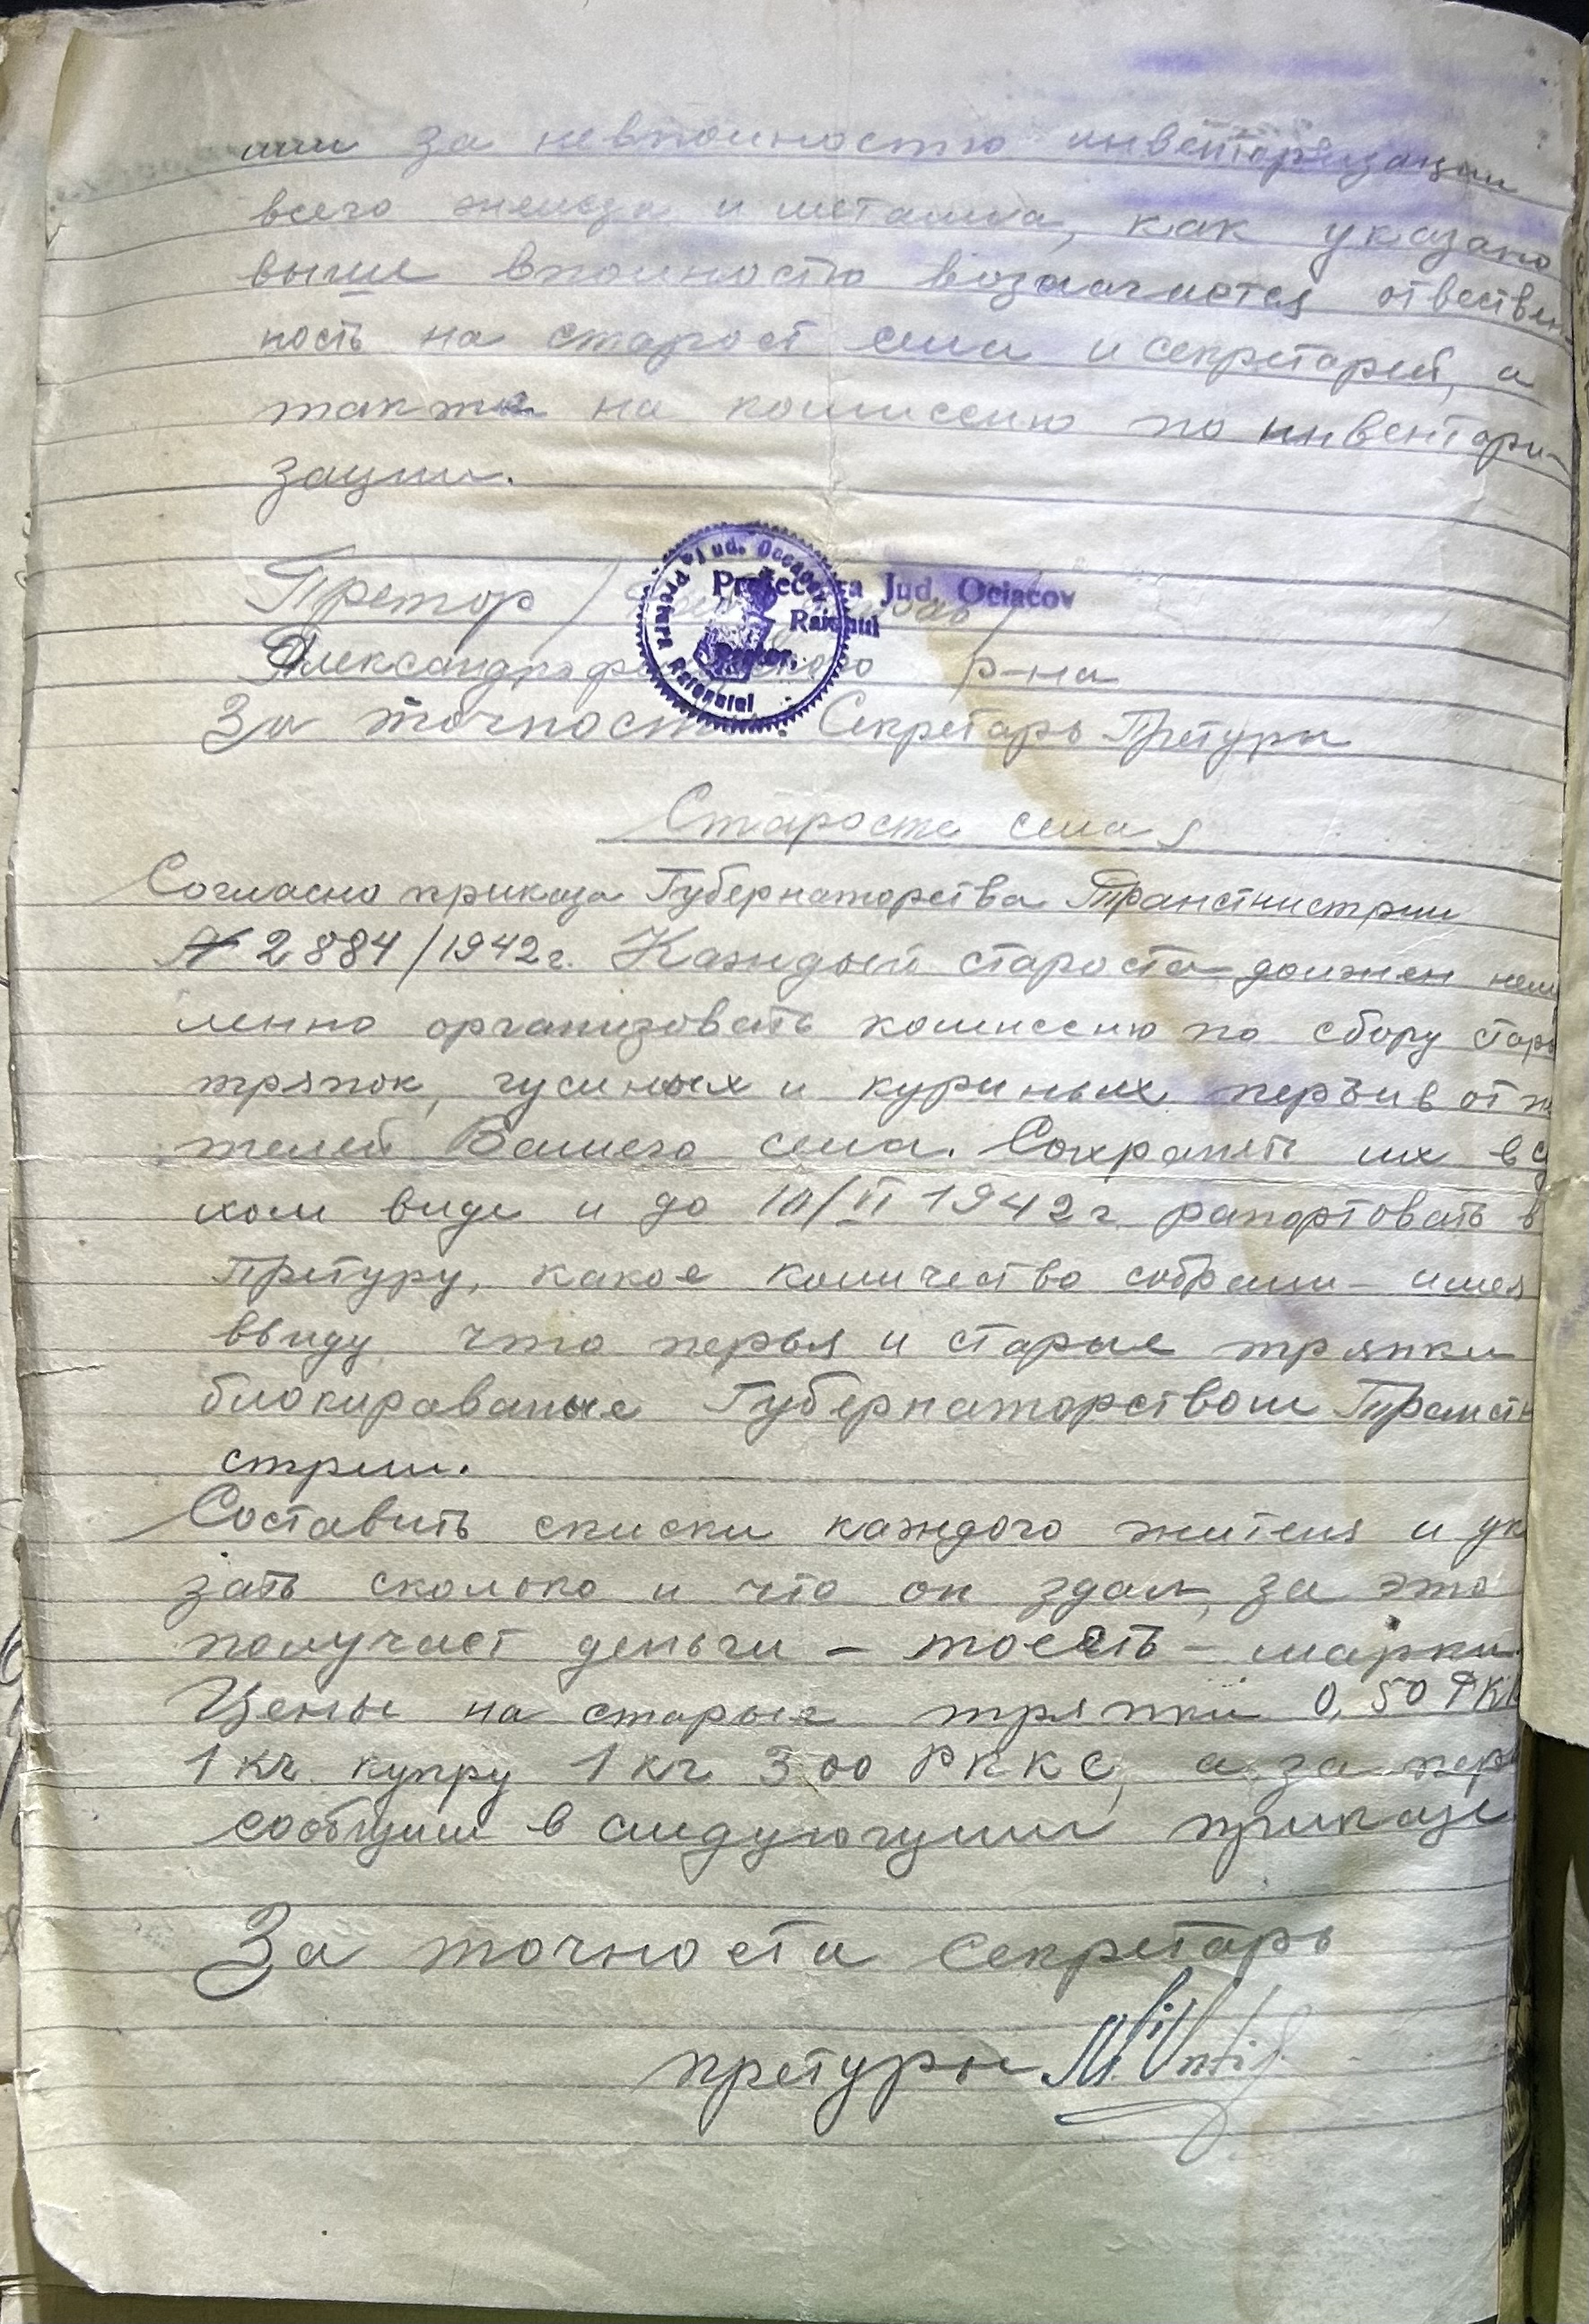 ши за невполностю инвентаризации
всего железа и металла, как указано
выше вполностю возлагается отвествен
ность на старост села и секретарей, а
также на комиссию по инвентари-
зации.
Prefectura Jud. Ociacov
Raionul
Pretor,
Jud. Ociacov
Raionului
Претор /
Р-на
За точность Секретарь Претуры
Старосте села
Согласно приказа Губернаторства Транстнистрии
№ 2884/1942г. Каждый староста должен нем
ленно организовать комиссию по сбору стары
тряпок, гусиных и куриных перьив от жи
телей Вашего села. Сохранять их в су
хом виде и до 10/VI 1942г. рапортовать в
Претуру, какое количество собрали – имея
ввиду что перья и старые тряпки
блокираваные Губернаторством Транстн
стрии.
Составить списки каждого жителя и ук
зать сколько и что он здал, за это
получает деньги – тоесть – марки.
Цены на старые тряпки 0,50 РКК
1 кг. купру 1 кг 300 РККС, а за пер
сообщим в следующим приказе
За точности Секретарь
претуры